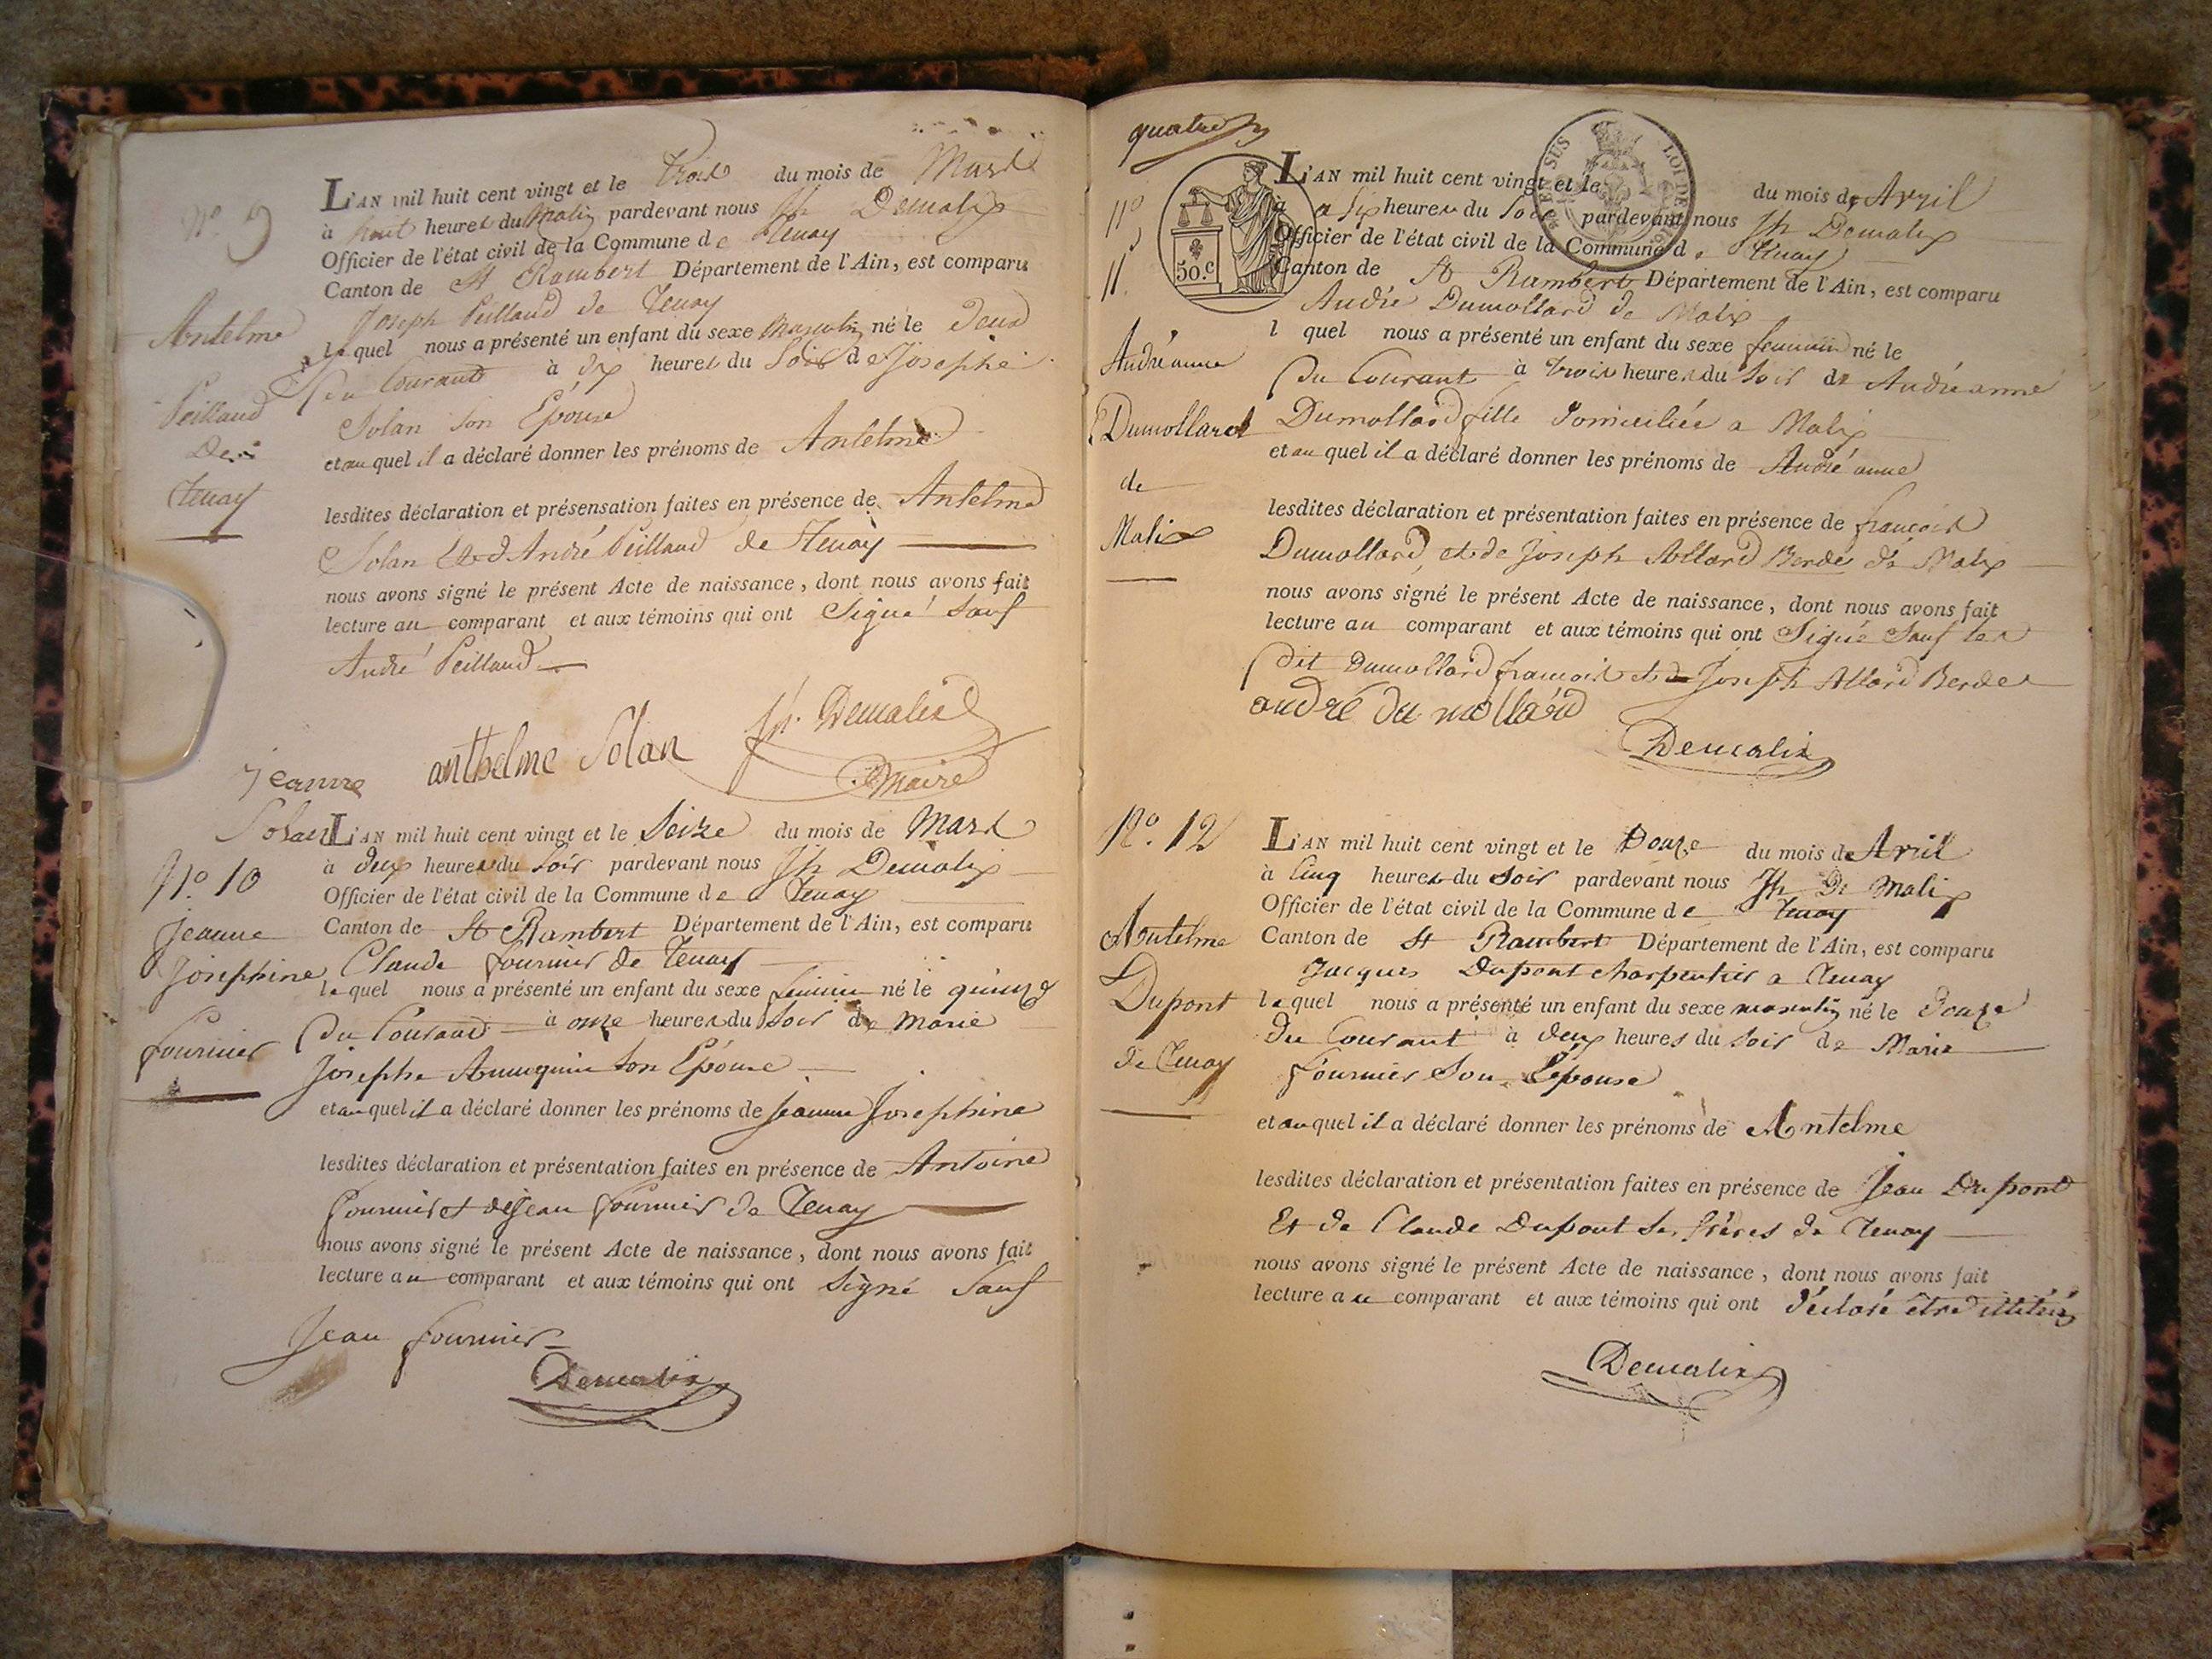 N.o 9
Antelme
Peillaud
De
Tenay
L'AN mil huit cent vingt et le trois du mois de Mars
à huit heures du Matin pardevant nous Jh Demalix
Officier de l'état civil de la Commune de Tenay
Canton de St Rambert Département de l'Ain, est comparu
Joseph Peillaud de Tenay
lequel nous a présenté un enfant du sexe Masculin né le deux
du Courant à dix heures du Soir de Josephe
Solan son Épouse
et au quel il a déclaré donner les prénoms de Antelme
lesdites déclaration et présensation faites en présence de Antelme
Solan Et d'André Peillaud de Tenay
nous avons signé le présent Acte de naissance, dont nous avons fait
lecture au comparant et aux témoins qui ont Signé Sauf
André Peillaud
anthelme Solan Jh. Demalix
Maire
Jeanne
Solan
N.o 10
Jeanne
Josephine
fournier
L'AN mil huit cent vingt et le Seize du mois de Mars
à deux heures du Soir pardevant nous Jh Demalix
Officier de l'état civil de la Commune de Tenay
Canton de St Rambert Département de l'Ain, est comparu
Claude fournier de Tenay
lequel nous a présenté un enfant du sexe feminin né le quinze
du Courant à onze heures du Soir de Marie
Josephe son Épouse
et au quel il a déclaré donner les prénoms de Jeanne Josephine
lesdites déclaration et présentation faites en présence de Antoine
fournier et de Jean fournier de Tenay
nous avons signé le présent Acte de naissance, dont nous avons fait
lecture au comparant et aux témoins qui ont Signé Sauf
Jean fournier
Demalix
quatre
50.c
EN SUS
LOI DE
N.o
11.
Andréanne
Dumollard
de
Malix
L'AN mil huit cent vingt et le du mois de Avril
à Six heures du Soir pardevant nous Jh Demalix
Officier de l'état civil de la Commune de Tenay
Canton de St Rambert Département de l'Ain, est comparu
André Dumollard de Malix
l quel nous a présenté un enfant du sexe feminin né le
du Courant à trois heures du Soir de Andréanne
Dumollard fille domiciliée a Malix
et au quel il a déclaré donner les prénoms de André anne
lesdites déclaration et présentation faites en présence de françois
Dumollard, et de Joseph Allard Berdes de Malix
nous avons signé le présent Acte de naissance, dont nous avons fait
lecture au comparant et aux témoins qui ont Signé Sauf les
dit Dumollard françois et Joseph Allard Berdes
andré du mollard
Demalix
N.o 12
Antelme
Dupont
de Tenay
L'AN mil huit cent vingt et le Douze du mois de Avril
à Cinq heures du Soir pardevant nous Jh De Malix
Officier de l'état civil de la Commune de Tenay
Canton de St Rambert Département de l'Ain, est comparu
Jacques Dupont charpentier a Tenay
lequel nous a présenté un enfant du sexe masculin né le douze
du Courant à deux heures du Soir de Marie
fournier Son Épouse
et au quel il a déclaré donner les prénoms de Antelme
lesdites déclaration et présentation faites en présence de Jean Dupont
Et de Claude Dupont Ses frères de Tenay
nous avons signé le présent Acte de naissance, dont nous avons fait
lecture au comparant et aux témoins qui ont déclaré être illitérés
Demalix